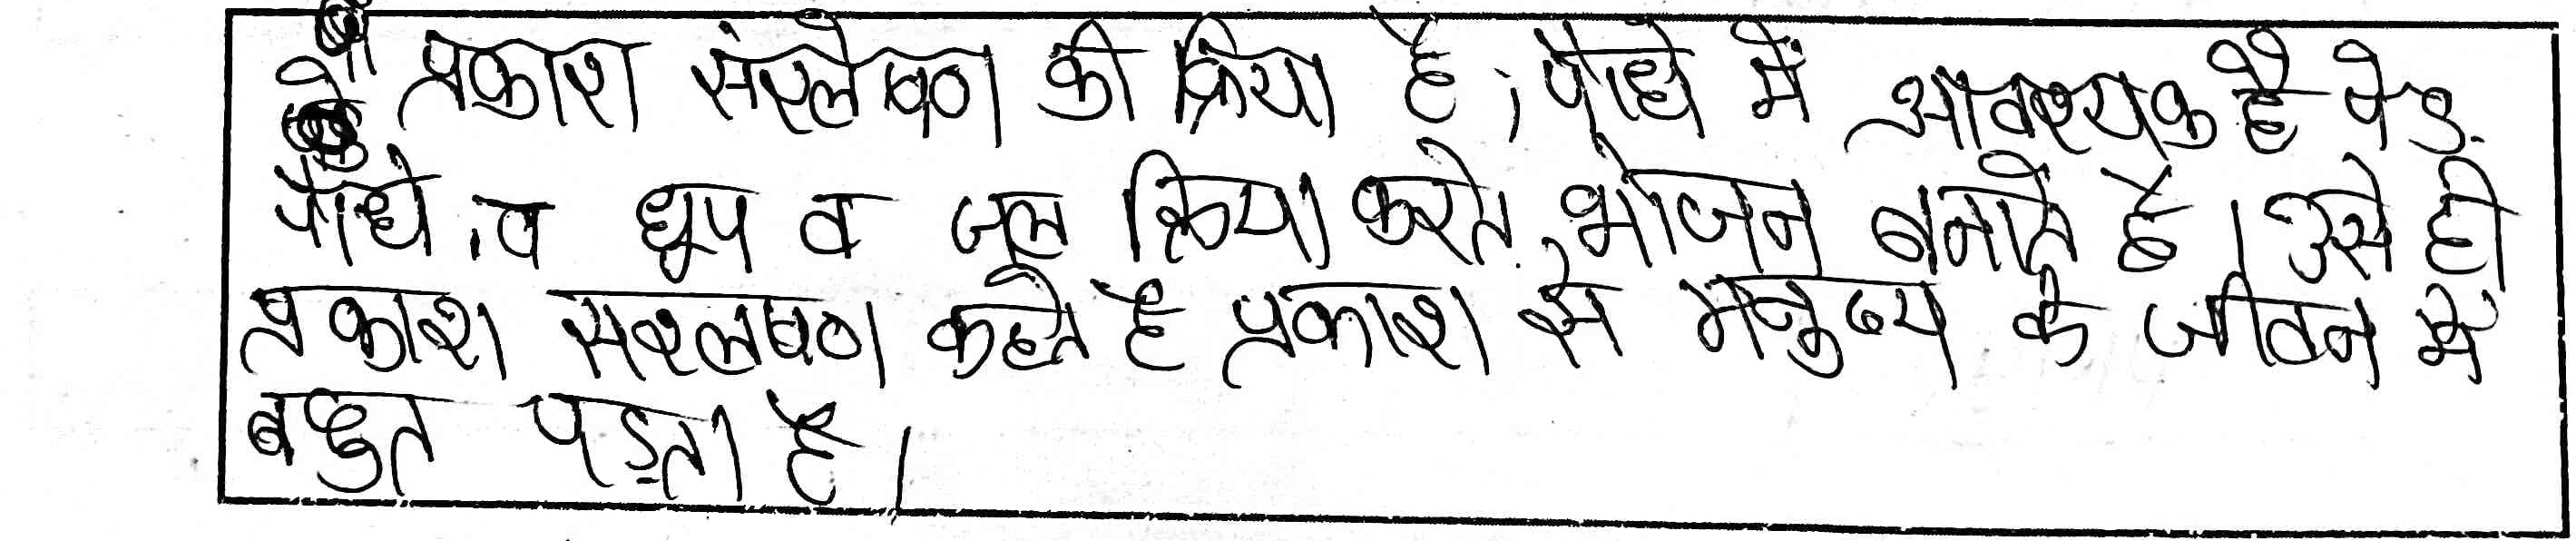 प्रकाश संश्लेषण की क्रिया है, पौधे में आवश्यक है पेड़
पौधे, व धूप व जल क्रिया करते, भोजन बनाते है। उसे ही
प्रकाश सश्लषण कहते है प्रकाश से मनुष्य के जीवन में
बहुत पड़ता है।